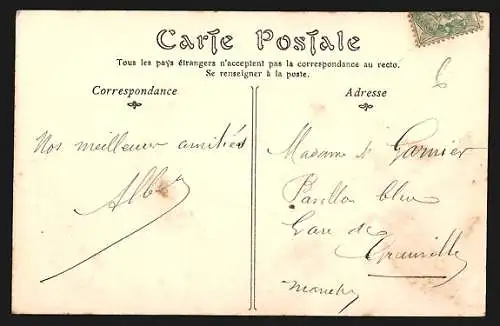 Carte Postale
Tous les pays étrangers n'acceptent pas la correspondance au recto.
Se renseigner à la poste.
Correspondance
Adresse
Nos meilleur amitiés
Madame Garnier
Pavillon bleu
Gare de
Granville
Manche